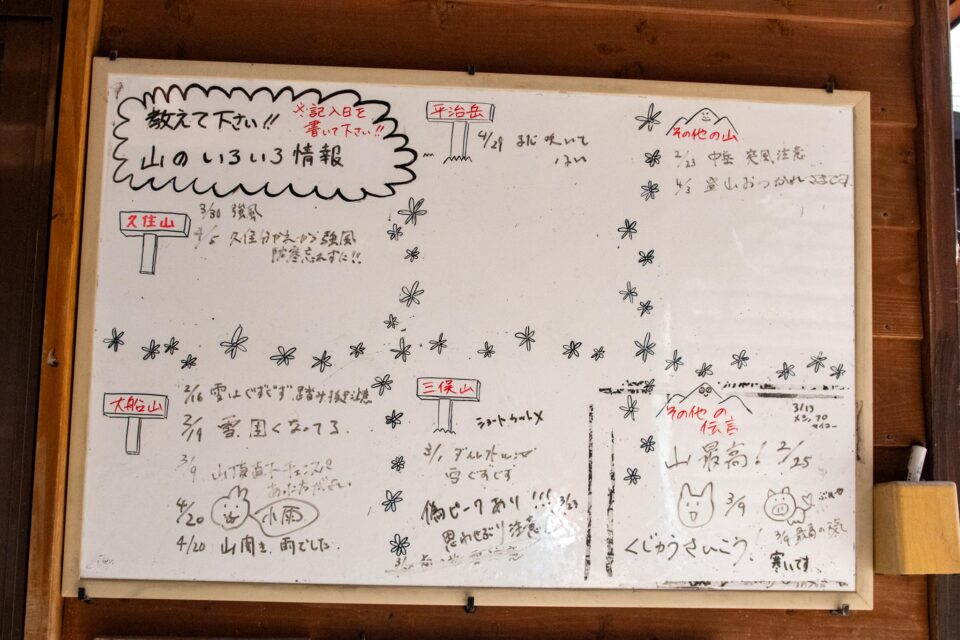 教えて下さい!!
※記入日を
書いて下さい!!
山のいろいろ情報
久住山
3/30 強風
4/5 久住分かれから強風
防寒忘れずに!!
平治岳
4/29 まだ咲いて
ない
その他の山
2/23 中岳 突風注意
4/3 登山おつかれさまです
大船山
2/16 雪はぐずぐず 踏み抜き注意
3/9 雪、固くなってる.
3/9 山頂直下
4/20 小雨
4/20 山開き、雨でした.
三俣山
ショートカット×
3/1
雪ぐずぐず
偽ピークあり!!! 3/23
思わせぶり注意
その他の
伝言
3/13
山最高! 2/25
3/9
3/9 最高の
くじゅうさいこう!
寒いです